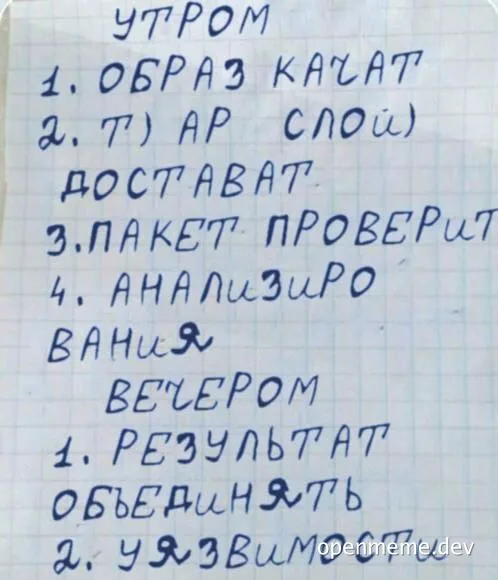 УТРОМ
1. ОБРАЗ КАЧАТ
2. Т) АР СЛОЙ)
ДОСТАВАТ
3. ПАКЕТ ПРОВЕРИТ
4. АНАЛИЗИРО
ВАНИЯ
ВЕЧЕРОМ
1. РЕЗУЛЬТАТ
ОБЪЕДИНЯТЬ
2. УЯЗВИМОСТИ
openmeme.dev